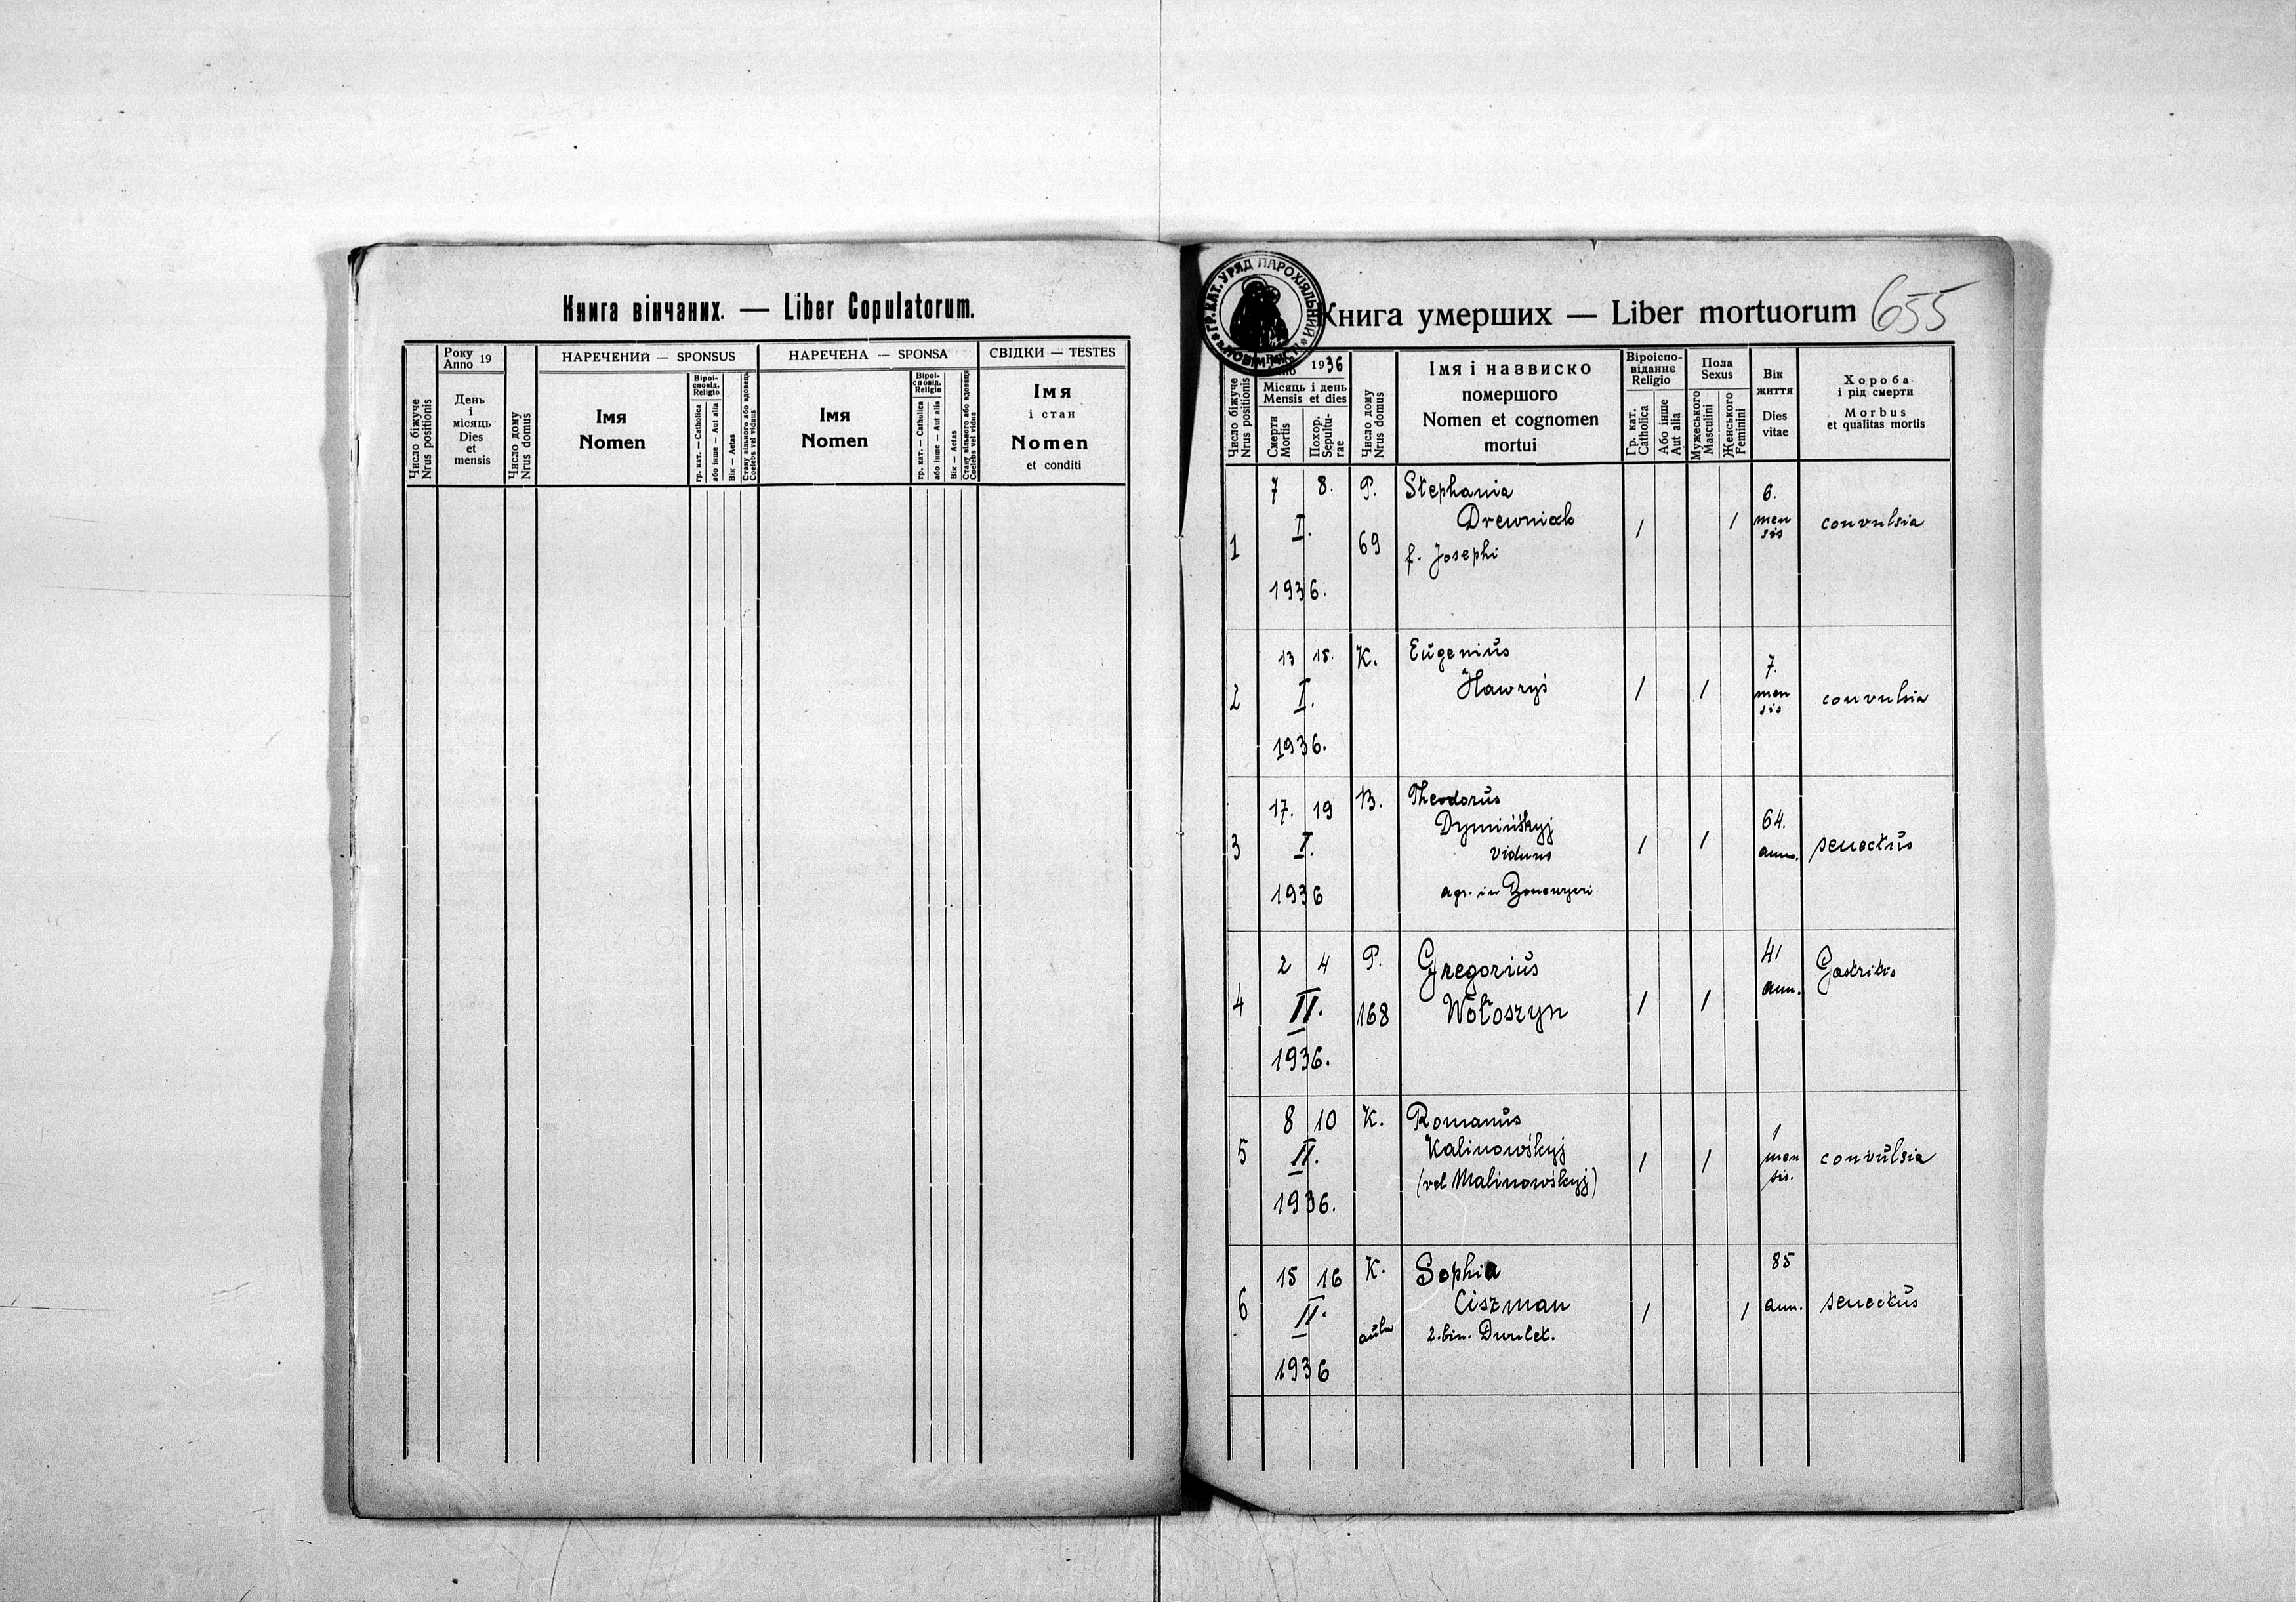 Книга вінчаних. — Liber Copulatorum.
Число біжуче
Nrus positionis
Року
Anno 19
День
і
місяць
Dies
et
mensis
Число дому
Nrus domus
НАРЕЧЕНИЙ — SPONSUS
Імя
Nomen
Віроі-
сповід.
Religio
гр. кат. — Catholica
або інше — Aut alia
Вік — Aetas
Стану вільного або вдовець
Coelebs vel viduus
НАРЕЧЕНА — SPONSA
Імя
Nomen
Віроі-
сповід.
Religio
гр. кат. — Catholica
або інше — Aut alia
Вік — Aetas
Стану вільного або вдовиця
Coelebs vel vidua
СВІДКИ — TESTES
Імя
і стан
Nomen
et conditi
ГР. КАТ. УРЯД ПАРОХІЯЛЬНИЙ
Книга умерших — Liber mortuorum 655
Число біжуче
Nrus positionis
1936
Місяць і день
Mensis et dies
Смерти
Mortis
Похор.
Sepultu-
rae
Число дому
Nrus domus
Імя і назвиско
помершого
Nomen et cognomen
mortui
Віроіспо-
віданнє
Religio
Гр. кат.
Catholica
Або інше
Aut alia
Пола
Sexus
Мужеського
Masculini
Женського
Feminini
Вік
життя
Dies
vitae
Хороба
і рід смерти
Morbus
et qualitas mortis
1 7 8. I. 1936. P. 69
Stephania
Drewniak
f. Josephi
/ / 6.
men
sis
convulsia
2 13 15. I. 1936. K.
Eugenius
Hawryś
/ / 7.
men
sis
convulsia
3 17. 19 I. 1936 B.
Theodorus
Dymińśkyj
viduus
agr. in
/ / 64.
ann.
senectus
4 2 4 II. 1936. P. 168
Gregorius
Wołoszyn
/ / 41
ann.
Gastritis
5 8 10 II. 1936. K.
Romanus
Kalinowśkyj
(vel Malinowśkyj)
/ / 1
men
sis.
convulsia
6 15 16 II. 1936 K. aula
Sophia
Ciszman
2. bin. Durlek.
/ / 85
ann.
senectus